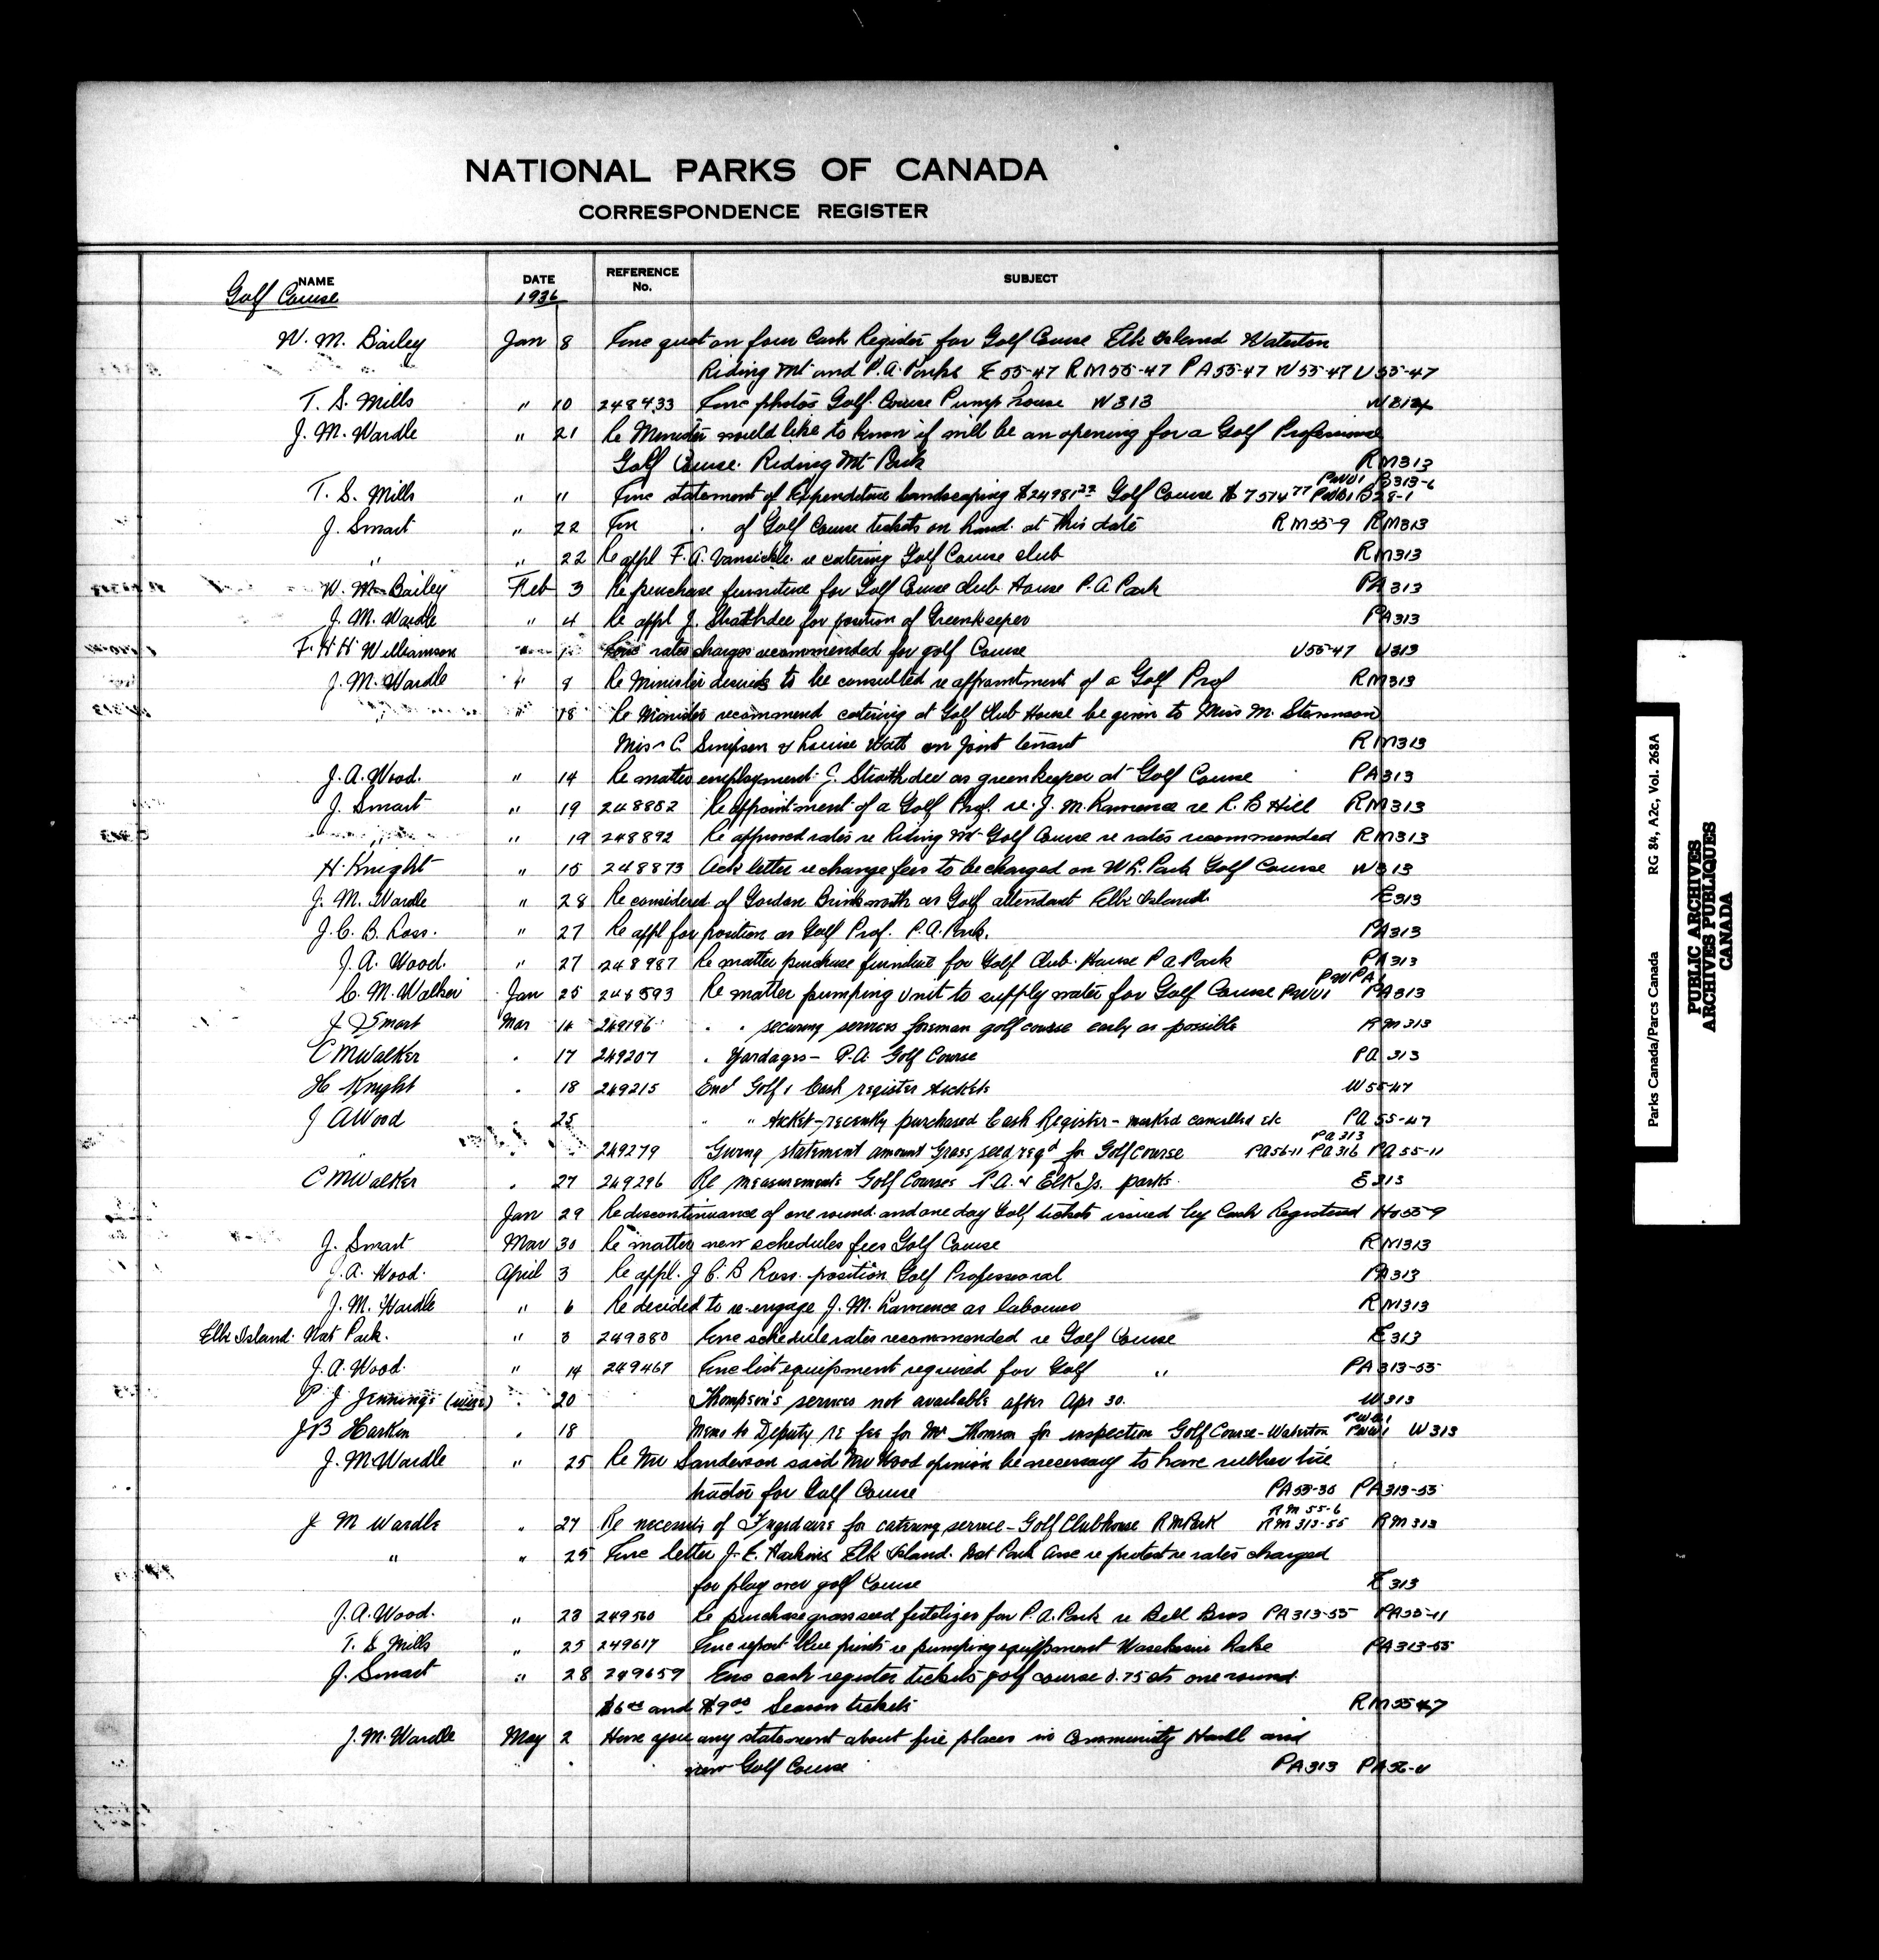 NATIONAL PARKS OF CANADA
CORRESPONDENCE REGISTER
NAME DATE REFERENCE No. SUBJECT
Golf Course 1936
W. M. Bailey Jan 8 quot on four Cash Register for Golf Course Elk Island Waterton
Riding Mt and P.A. Parks E55-47 RM55-47 PA55-47 W55-47 U55-47
T. S. Mills " 10 248433 photos Golf Course Pump house W313
J. M. Wardle " 21 Re Minister would like to know if will be an opening for a Golf Professional
Golf Course Riding Mt Park RM313
PWU1 B313-6
T. S. Mills " " statement of Expenditure landscaping Golf Course B28-1
J. Smart " 22 of Golf Course tickets on hand at this date RM55-9 RM313
" " 22 Re appl F. A. Vansickle re catering Golf Course club RM313
W. M. Bailey Feb 3 Re purchase furniture for Golf Course Club House P.A Park PA313
J. M. Wardle " 4 Re appl J. Strathdee for position of Greenkeeper PA313
F. H. H Williamson rates charges recommended for golf Course U55-47 U313
J. M. Wardle " 9 Re Minister desires to be consulted re appointment of a Golf Prof RM313
" 18 Re Minister recommend catering at Golf Club House be given to Miss M. Stevenson
Miss C. Simpson & Louise Watt on joint tenant RM313
J. A. Wood. " 14 Re matter employment J. Strathdee as greenkeeper at Golf Course PA313
J. Smart " 19 248882 Re appointment of a Golf Prof. re. J. M. Lamence re R. B Hill RM313
" " 19 248892 Re approved rates re Riding Mt Golf Course re rates recommended RM313
H. Knight " 15 248873 Ack letter re change fees to be charged on W.L. Park Golf Course W313
J. M. Wardle " 28 Re considered of Gordon as Golf attendant Elk Island E313
J. C. B. Ross. " 27 Re appl for position as Golf Prof. P.A. Park. PA313
J. A. Wood. " 27 248987 Re matter purchase furniture for Golf Club House P A Park PA313
C. M. Walker Jan 25 248593 Re matter pumping Unit to supply water for Golf Course PWU1 PA313
J Smart Mar 14 249196 . . securing services foreman golf course early as possible RM313
C M Walker . 17 249207 . Yardages - P.A. Golf Course PA 313
H Knight . 18 249215 Encl Golf & Cash register tickets W55-47
J A Wood . 25 " ticket - recently purchased Cash Register - marked cancelled etc PA 55-47
PA 313
" . 249279 Giving statement amount Grass seed reqd for Golf Course PA56-11 PA316 PA55-11
C M Walker . 27 249296 Re measurements Golf Courses P.A. & Elk Is. parks. E313
Jan 29 Re discontinuance of one round and one day Golf tickets issued by Cash Registered
J. Smart Mar 30 Re matter new schedules fees Golf Course RM313
J. A. Wood. April 3 Re appl. J C. B Ross. position Golf Professional PA313
J. M. Wardle " 6 Re decided to re-engage J. M. Lamence as labourer RM313
Elk Island Nat Park. " 3 249380 schedule rates recommended re Golf Course E313
J. A. Wood. " 14 249467 list equipment required for Golf " PA313-55
P J Jennings (wire) . 20 Thompson's services not available after Apr 30. W313
J B Harkin . 18 Memo to Deputy re fee for Mr Thomson for inspection Golf Course - Waterton W313
J. M. Wardle " 25 Re Mr Sanderson said Mr Wood opinion be necessary to have rubber tire
tractor for Golf Course PA55-36 PA313-55
RM 55-6
J M Wardle . 27 Re necessity of Frigidaire for catering service - Golf Clubhouse RM Park RM 313-55 RM 313
" " 25 letter J. E. Elk Island Nat Park re protest re rates charged
for play over golf Course E313
J. A. Wood. " 23 249560 Re purchase grass seed fertilizer for P.A. Park re Bell Bros PA313-55 PA55-11
T. S Mills " 25 249617 report blue prints re pumping equipment Waskesiu Lake PA313-55
J. Smart " 28 249659 cash register tickets golf course 0.75 cts one round
and Season tickets RM55-47
J. M. Wardle May 2 Have you any statement about fire places in Community Hall and
new Golf Course PA313
Parks Canada/Parcs Canada RG 84, A2c, Vol. 268A
PUBLIC ARCHIVES
ARCHIVES PUBLIQUES
CANADA